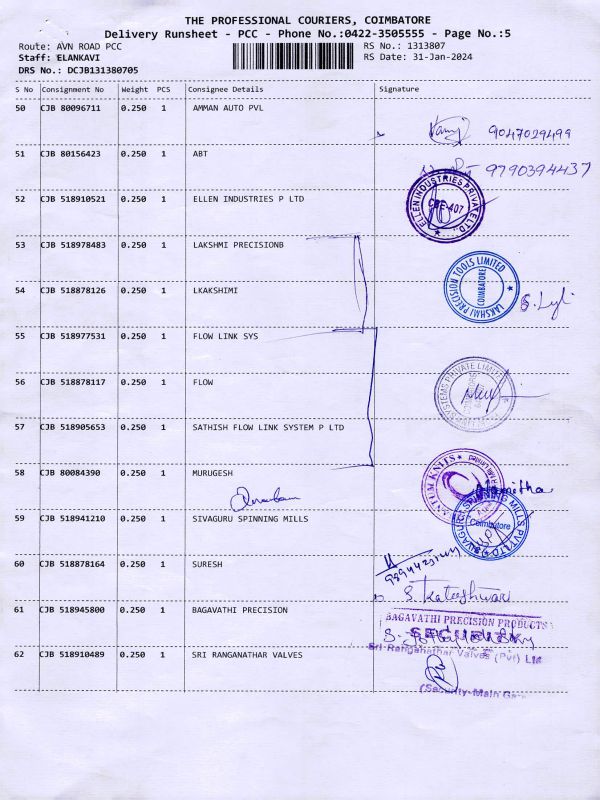 THE PROFESSIONAL COURIERS, COIMBATORE
Delivery Runsheet - PCC - Phone No.:0422-3505555 - Page No.:5
Route: AVN ROAD PCC
RS No.: 1313807
Staff: ELANKAVI
RS Date: 31-Jan-2024
DRS No.: DCJB131380705
S No Consignment No Weight PCS Consignee Details Signature
50 CJB 80096711 0.250 1 AMMAN AUTO PVL
9047029499
51 CJB 80156423 0.250 1 ABT
9790394437
52 CJB 518910521 0.250 1 ELLEN INDUSTRIES P LTD
ELLEN INDUSTRIES PRIVATE LTD.
CBE-407
53 CJB 518978483 0.250 1 LAKSHMI PRECISIONB
LAKSHMI PRECISION TOOLS LIMITED
COIMBATORE
54 CJB 518878126 0.250 1 LKAKSHIMI
55 CJB 518977531 0.250 1 FLOW LINK SYS
56 CJB 518878117 0.250 1 FLOW
SYSTEMS PRIVATE LIMITED
57 CJB 518905653 0.250 1 SATHISH FLOW LINK SYSTEM P LTD
58 CJB 80084390 0.250 1 MURUGESH
59 CJB 518941210 0.250 1 SIVAGURU SPINNING MILLS
SIVAGURU SPINNING MILLS PVT LTD
Coimbatore
60 CJB 518878164 0.250 1 SURESH
61 CJB 518945800 0.250 1 BAGAVATHI PRECISION
BAGAVATHI PRECISION PRODUCTS
SECURITY
62 CJB 518910489 0.250 1 SRI RANGANATHAR VALVES
Sri Ranganathar Valves (Pvt) Ltd
(Security-Main Ga